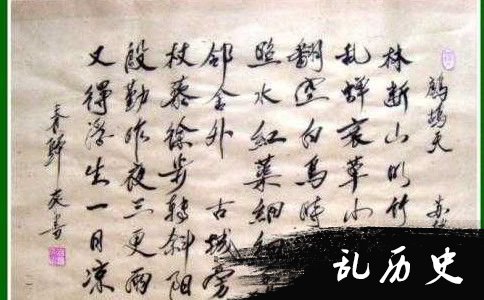 鹧鸪天
林断山明竹
乱蝉衰草小
翻空白鸟时
照水红蕖细
邨舍外 古城旁
杖藜徐步转斜阳
殷勤昨夜三更雨
又得浮生一日凉
乱历史